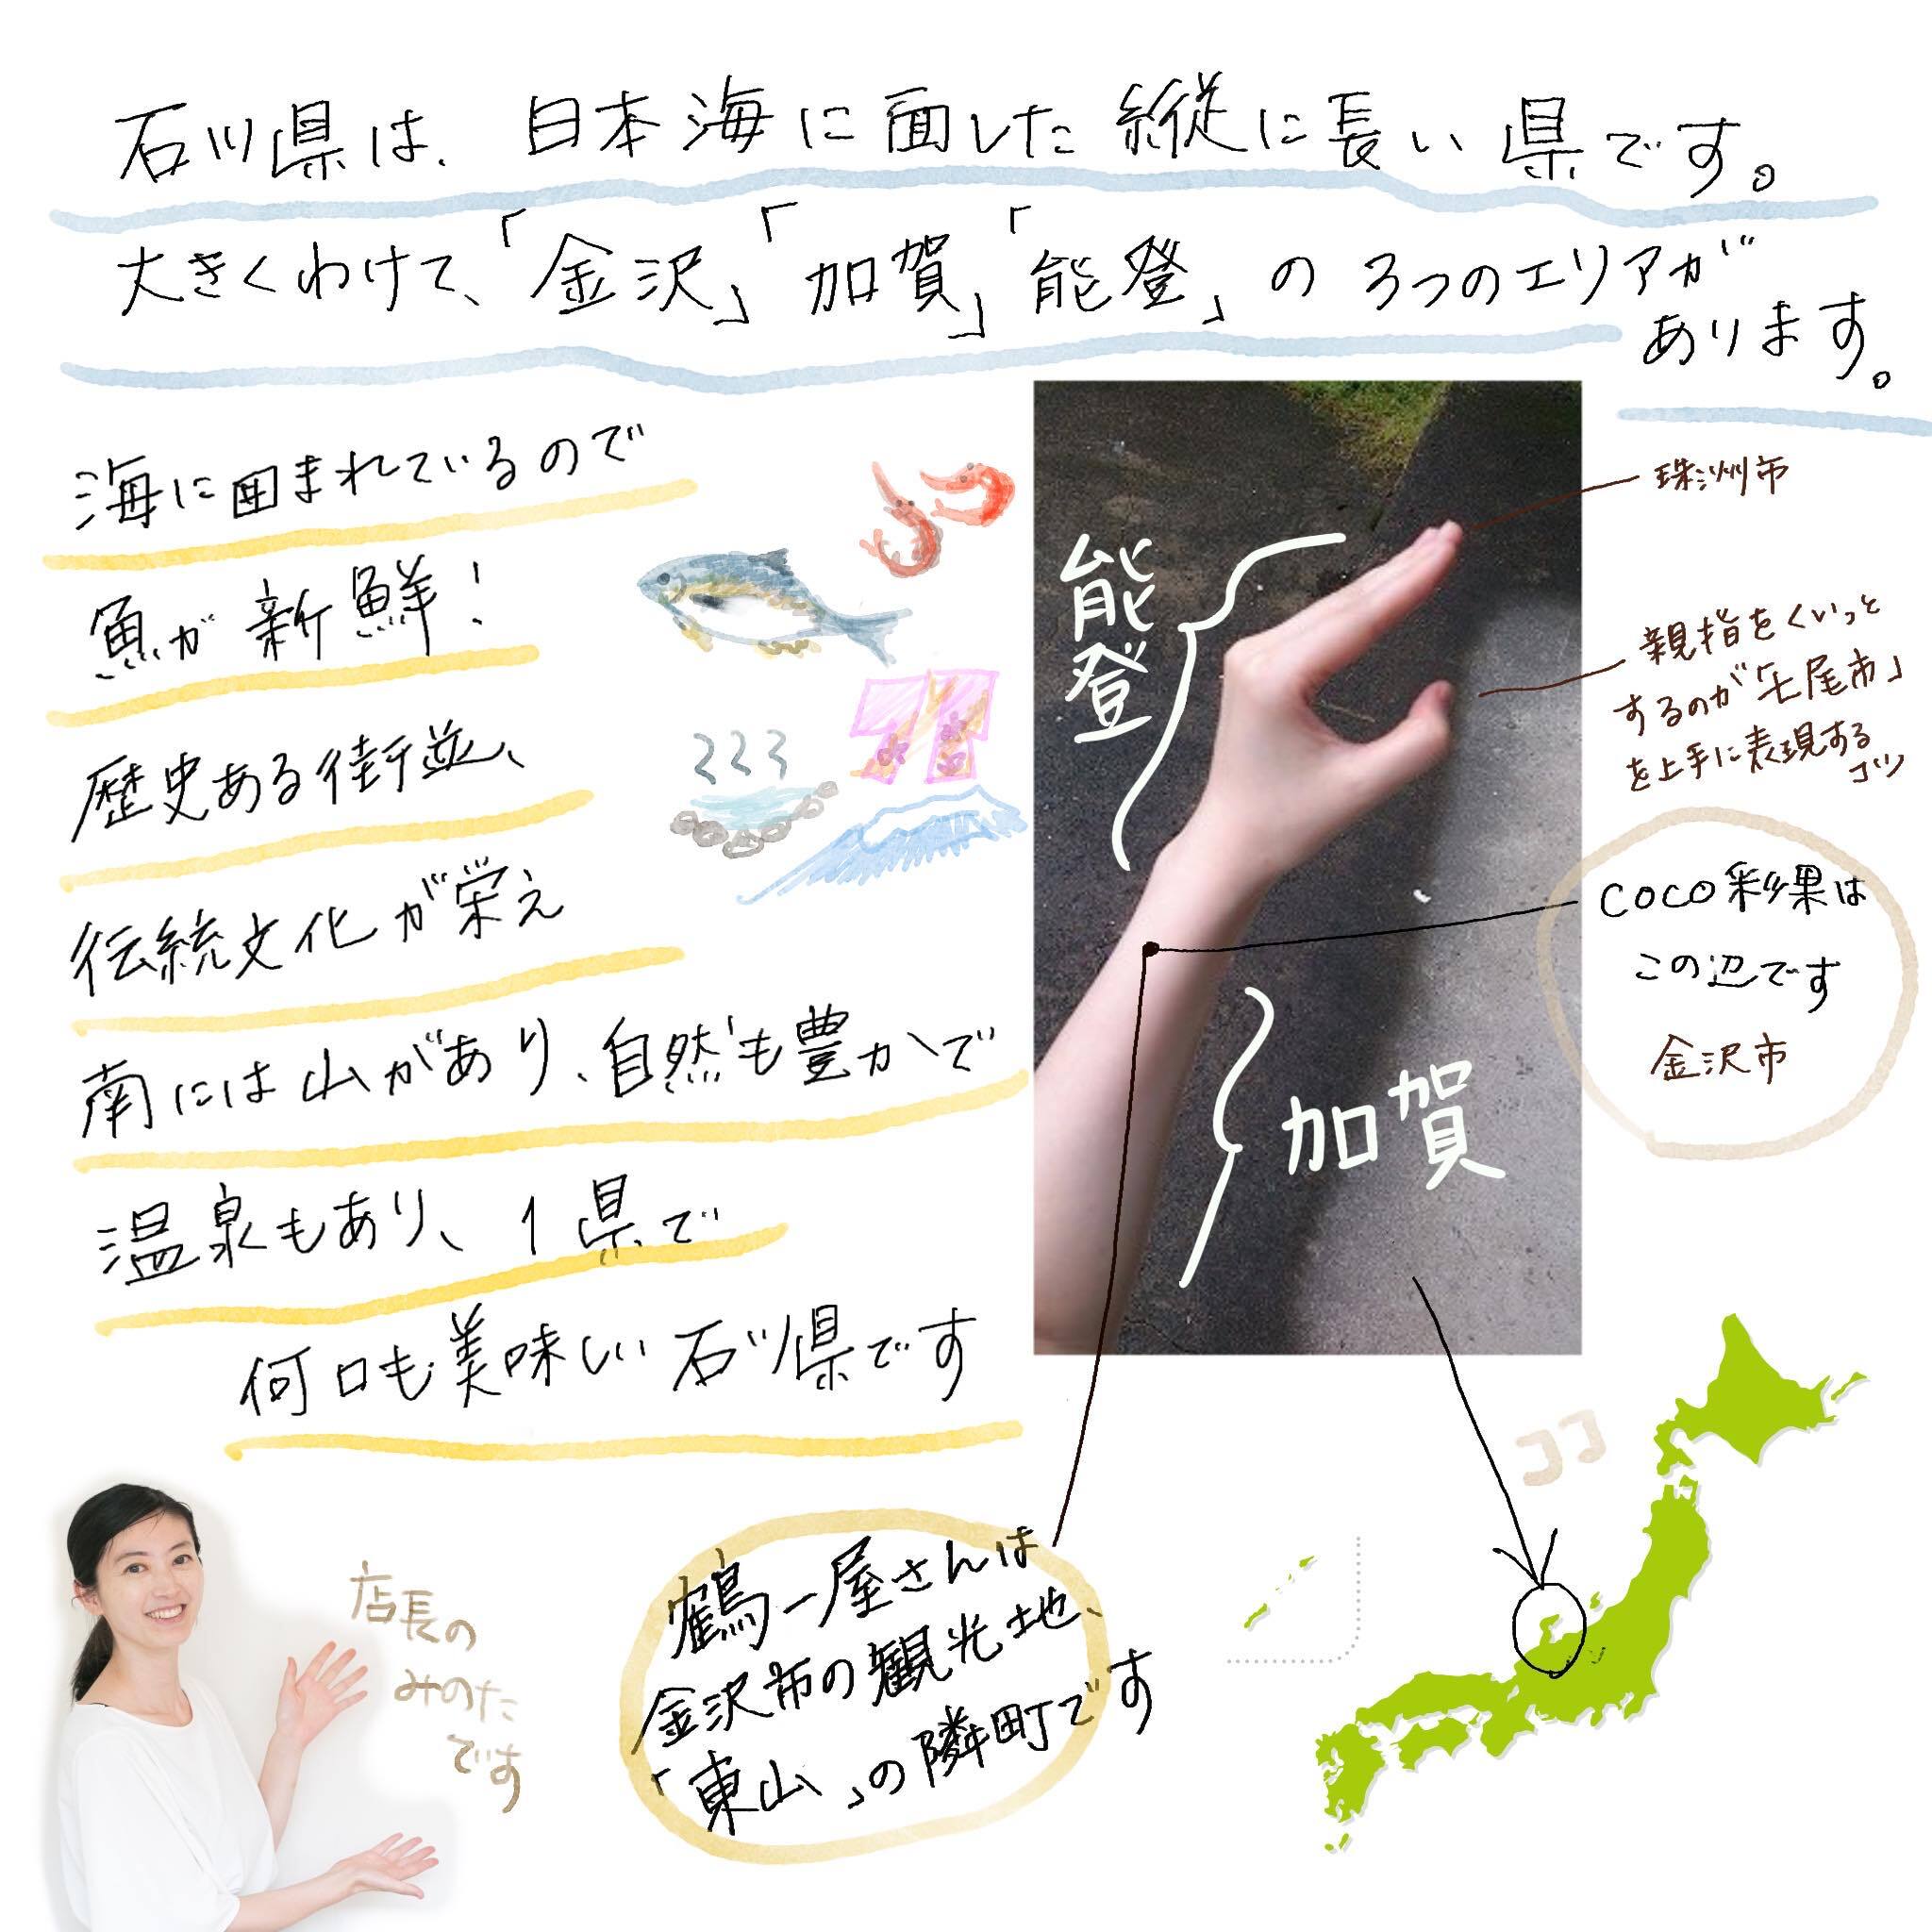 石川県は、日本海に面した縦に長い県です。
大きくわけて、「金沢」「加賀」「能登」の3つのエリアが
あります。
海に囲まれているので
魚が新鮮!
歴史ある街並、
伝統文化が栄え
南には山があり、自然も豊かで
温泉もあり、1県で
何口も美味しい石川県です
能登
加賀
珠洲市
親指をくいっと
するのが「七尾市」
を上手に表現する
コツ
COCO彩果は
この辺です
金沢市
ココ
店長の
みのた
です
鶴一屋さんは
金沢市の観光地、
「東山」の隣町です